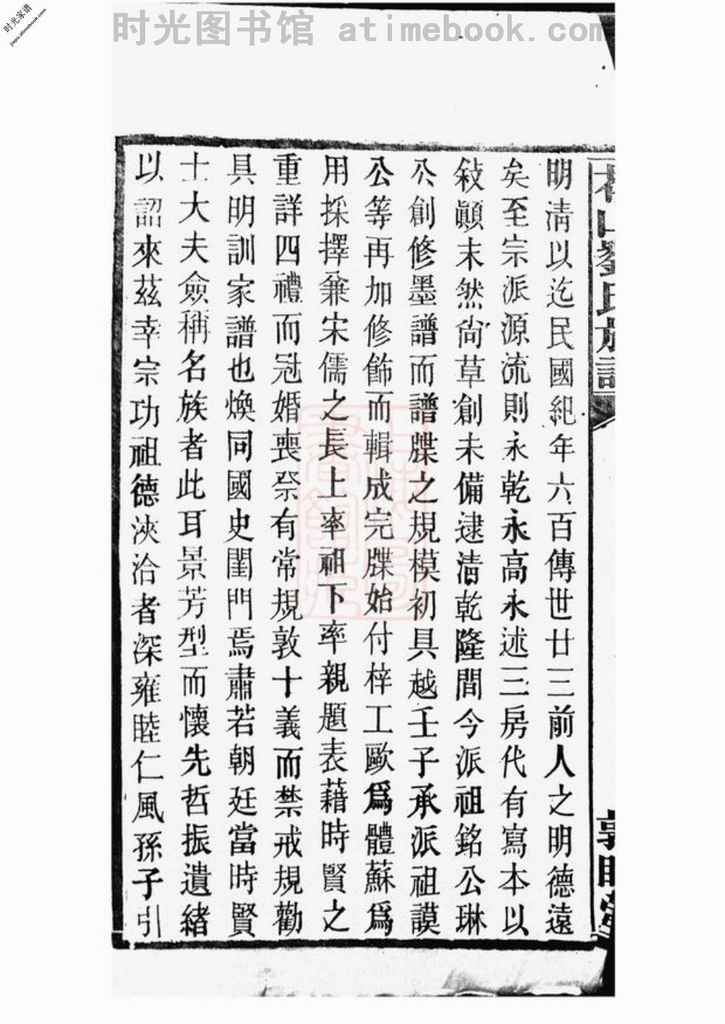 时光图书馆 atimebook.com
时光家谱
明淸以迄民國紀年六百傳世廿三前人之明德遠
矣至宗派源流則永乾永高永述三房代有寫本以
敍顚末然尙草創未備逮淸乾隆間今派祖銘公琳
公創修墨譜而譜牒之規模初具越壬子承派祖謨
公等再加修飾而輯成完牒始付梓工歐爲體蘇爲
用採擇兼宋儒之長上率祖下率親題表藉時賢之
重詳四禮而冠婚喪祭有常規敦十義而禁戒規勸
具明訓家譜也煥同國史閨門焉肅若朝廷當時賢
士大夫僉稱名族者此耳景芳型而懷先哲振遺緒
以詔來茲幸宗功祖德浹洽者深雍睦仁風孫子引